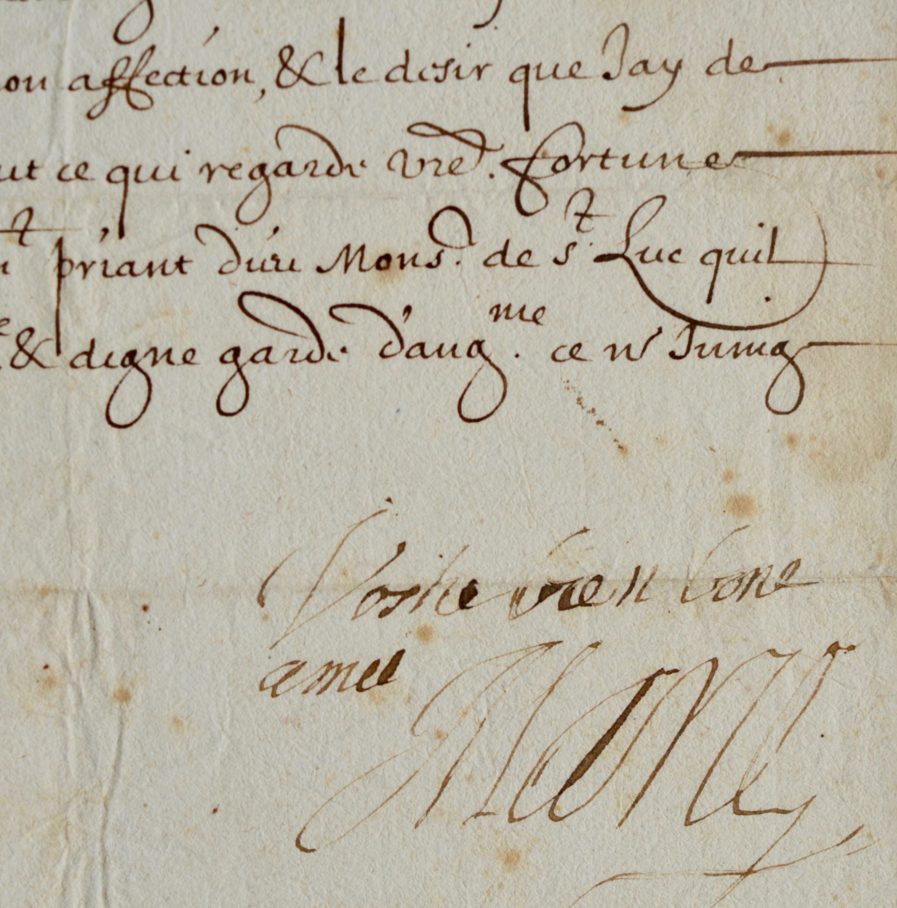 on affection, & le desir que Jay de
ut ce qui regarde vre. fortune
priant dieu Mons.r de s.t Luc quil
& digne garde d'ang.me ce Juing
Vostre bien bone
amie
Marie